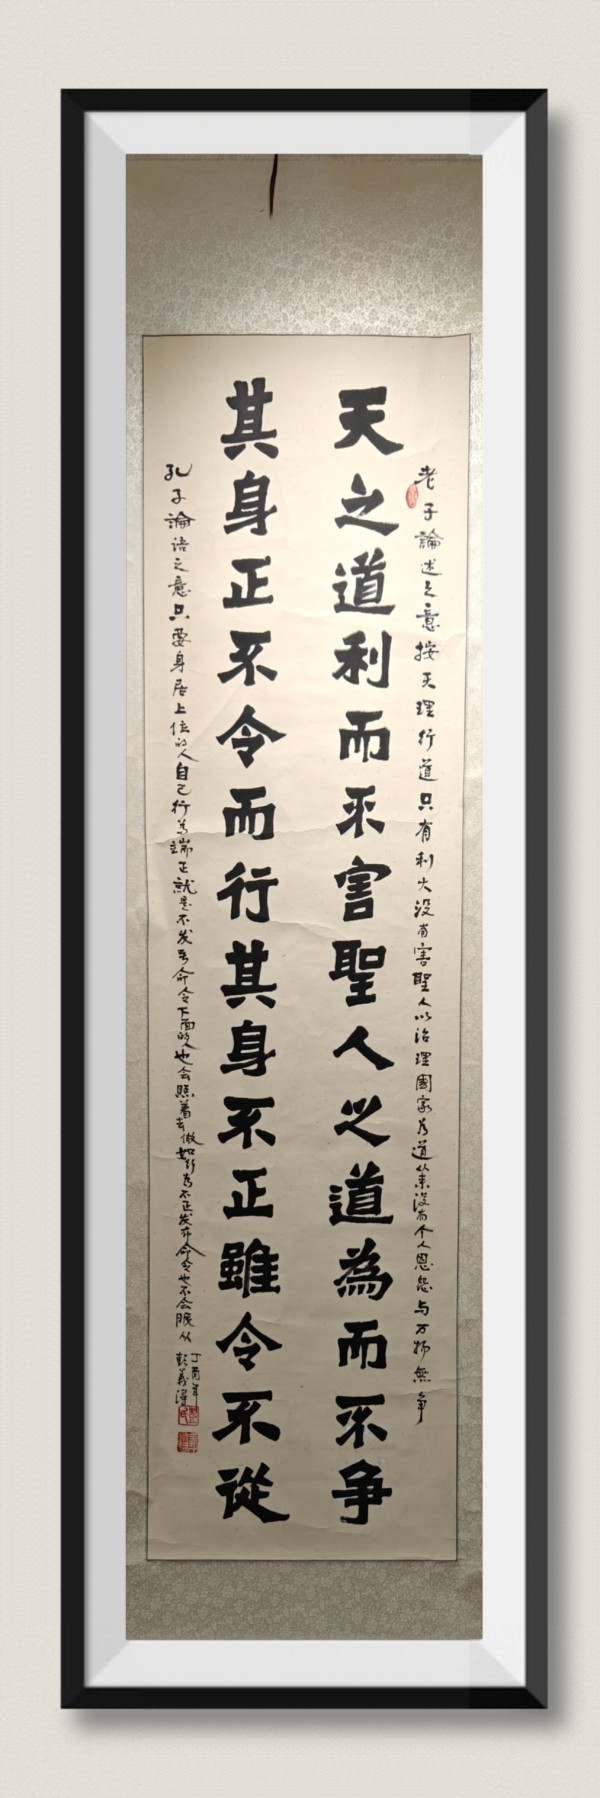 老子論述之意按天理行道只有利大没有害聖人以治理國家为道从来没有个人恩怨与万物無争
天之道利而不害聖人之道為而不争
其身正不令而行其身不正雖令不從
孔子論语之意只要身居上位的人自己行为端正就是不发号命令下面的人也会照着去做如行为不正发布命令也不会服从
丁酉年
彭義澤